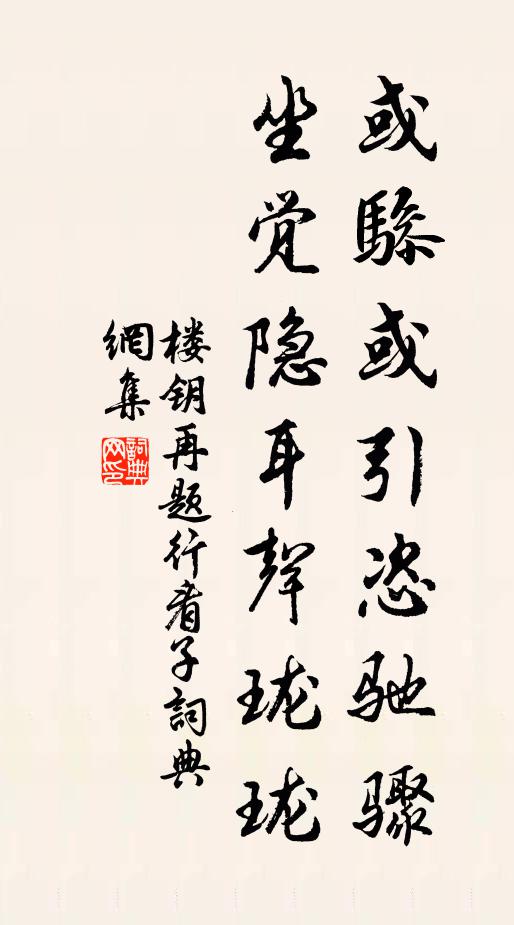 或驂或引恣驰骤
坐觉隐耳聲珑珑
楼钥再题行看子詞典
網集
詞典網印